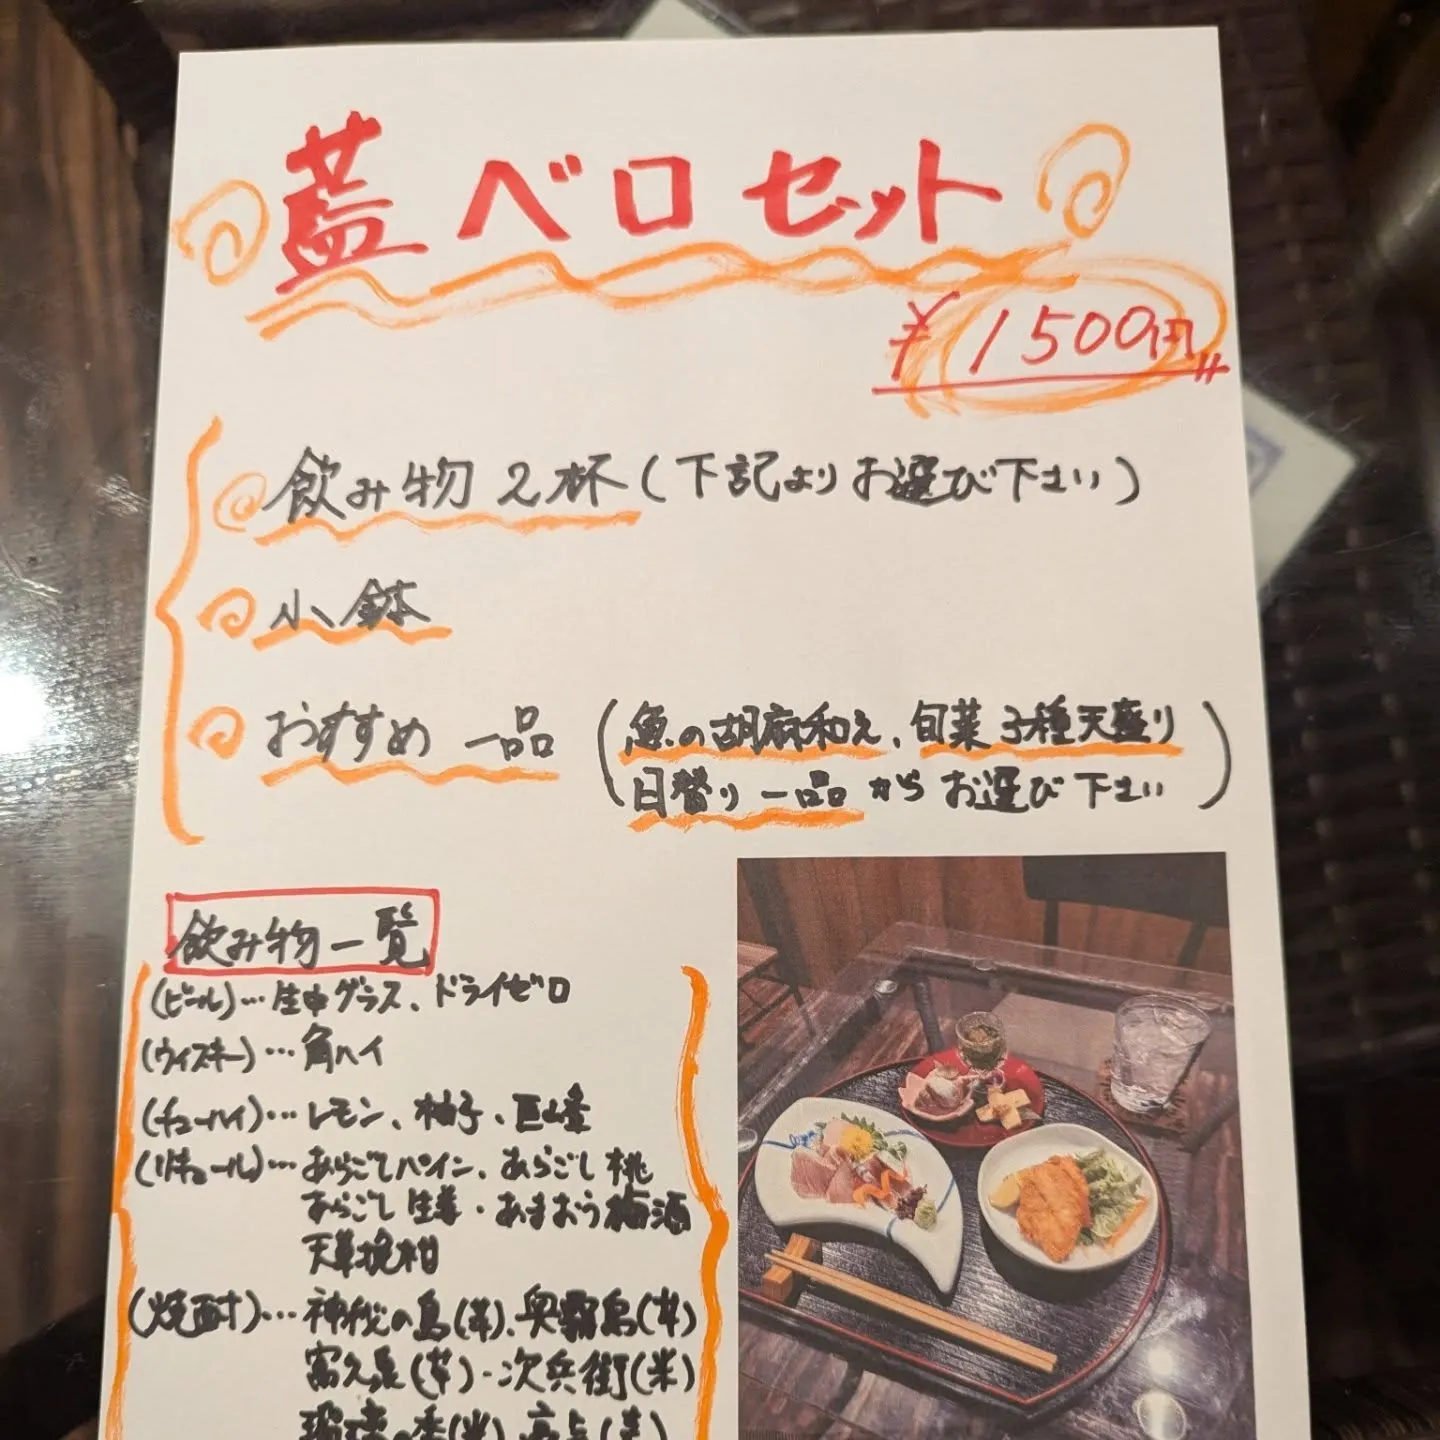 蓋ベロセット
¥1500円
飲み物2杯(下記よりお選び下さい)
小鉢
おすすめ一品(魚の胡麻和え、旬菜5種天盛り
日替り一品からお選び下さい)
飲み物一覧
(ビール)…生中グラス、ドライゼロ
(ウィスキー)…角ハイ
(チューハイ)…レモン、柚子、巨峰
(リキュール)…あらごしパイン、あらごし桃
あらごし生姜・あまおう梅酒
天草晩柑
(焼酎)…神秘の島(芋)、奥霧島(芋)
富久屋(芋)・次兵衛(米)
の香(米)